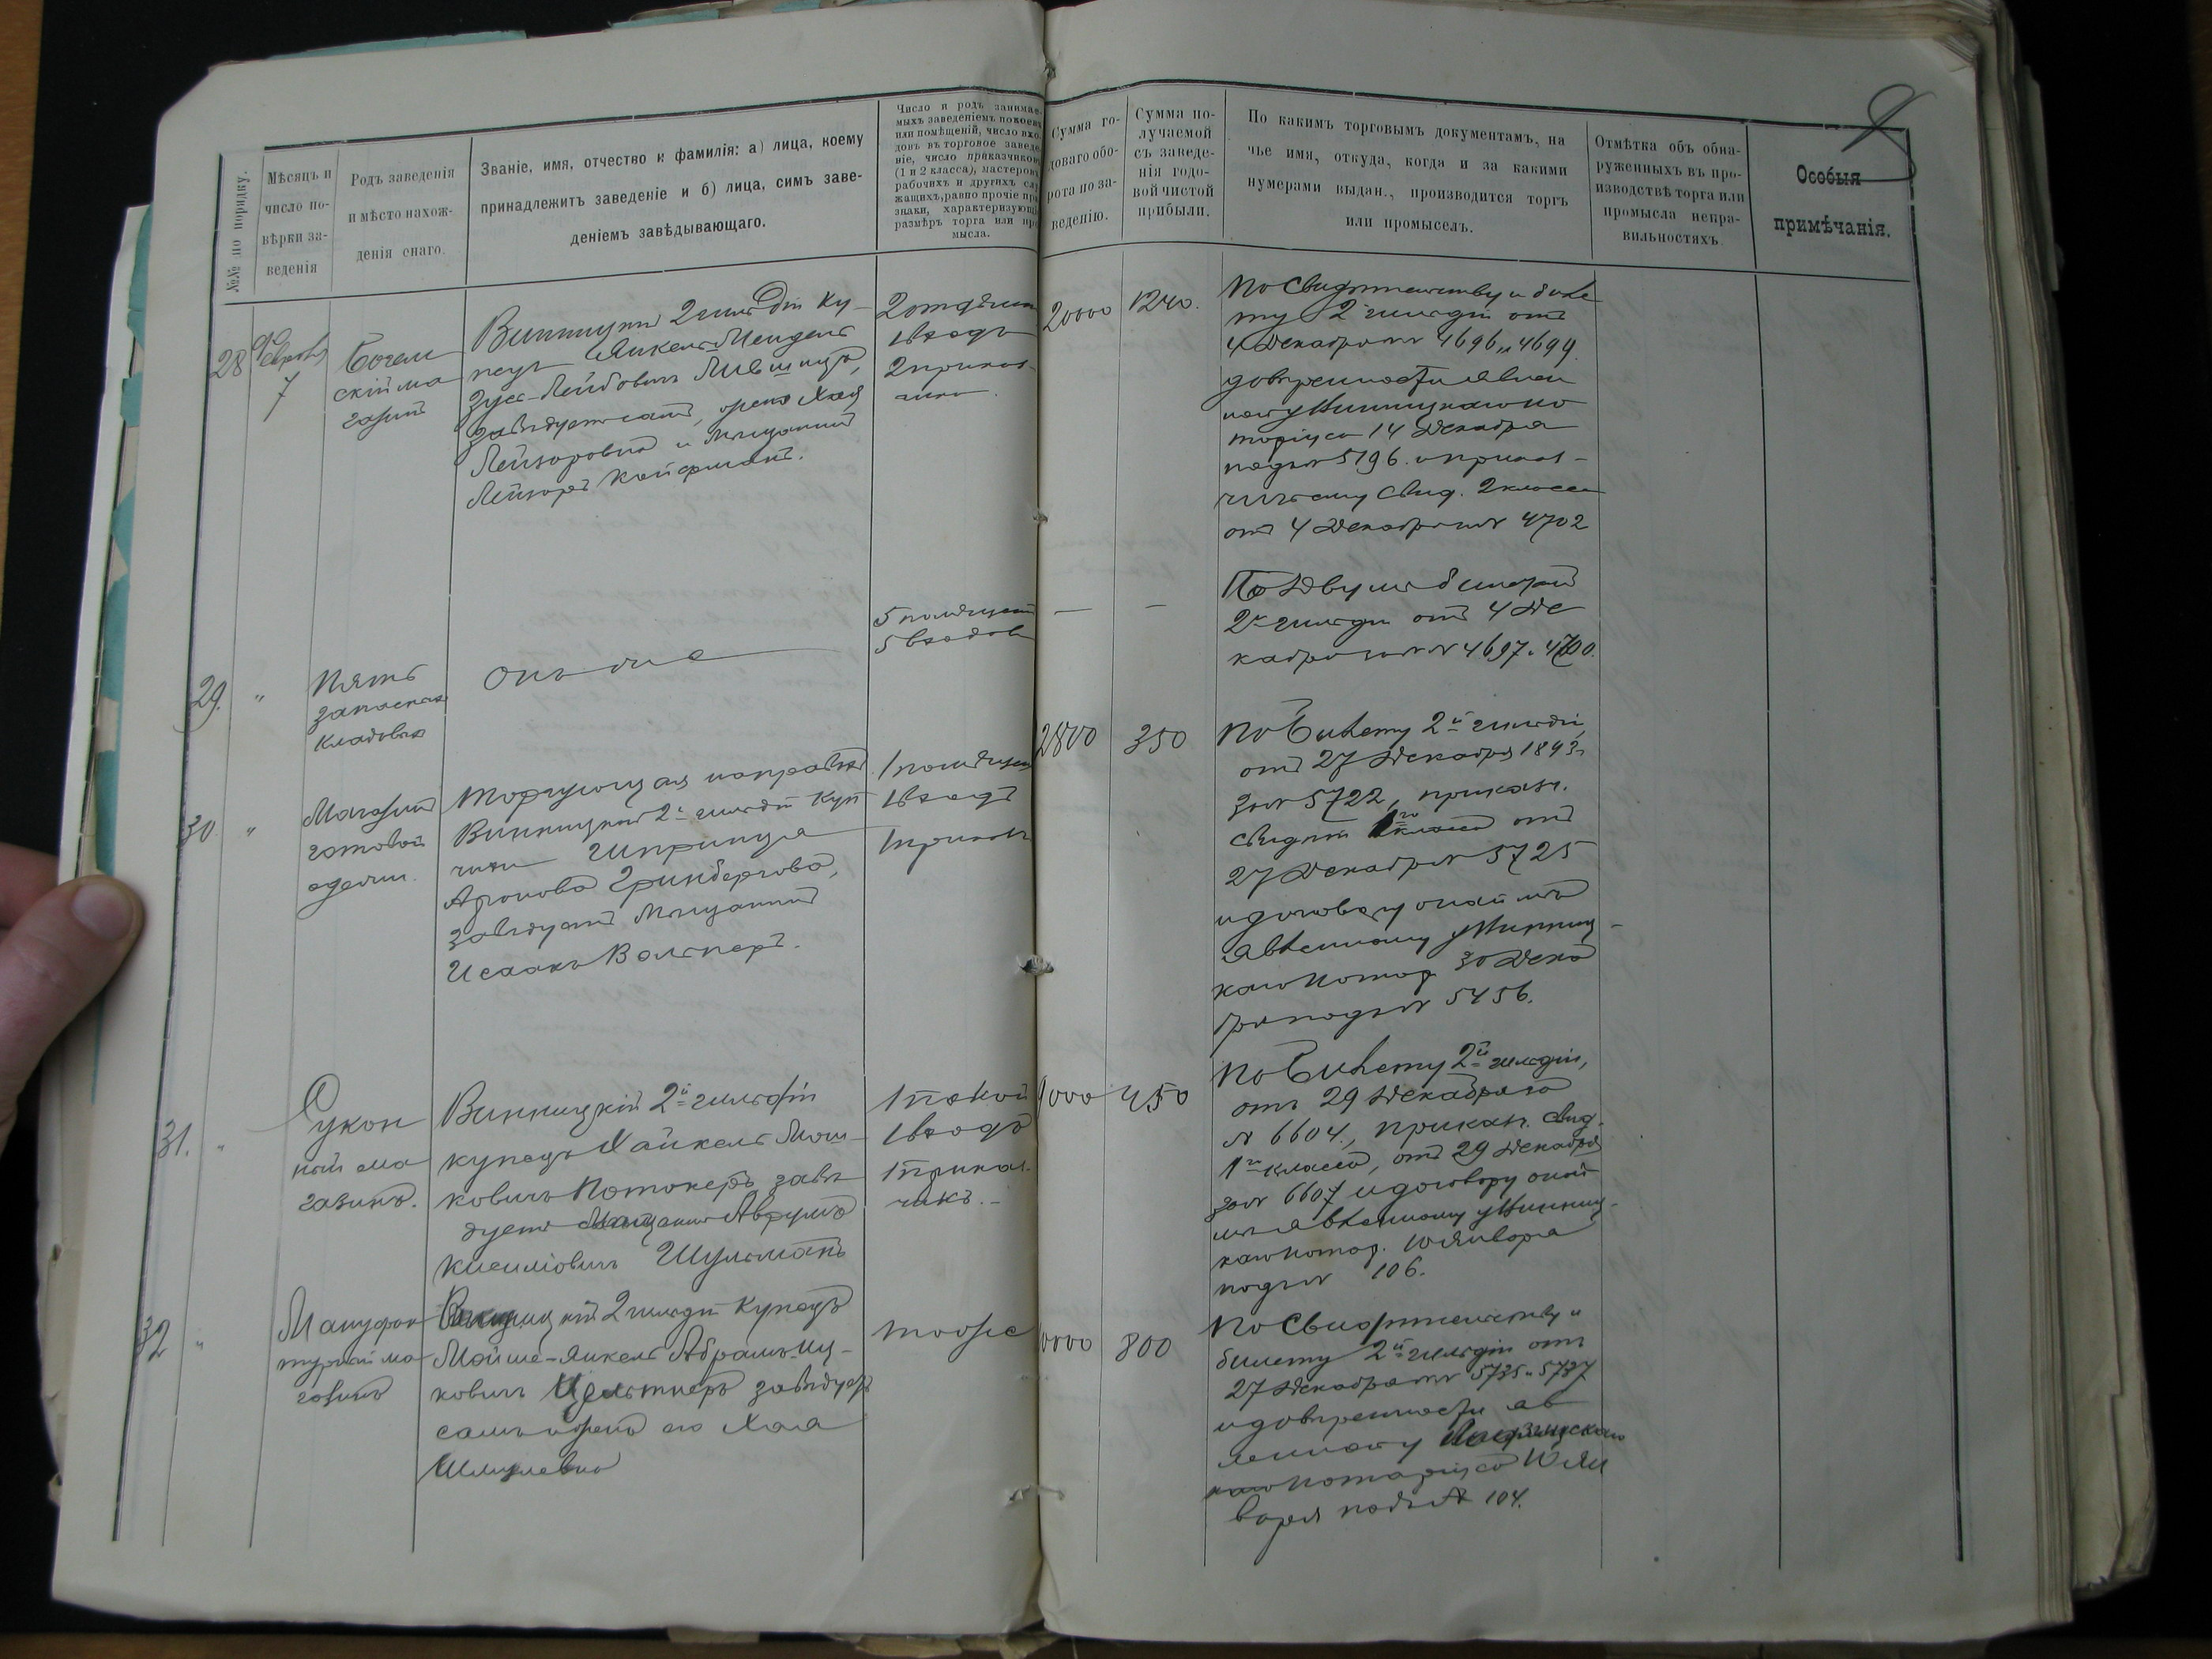 №№ по порядку.
Мѣсяцъ и
число по-
вѣрки за-
веденія
Родъ заведенія
и мѣсто нахож-
денія онаго.
Званіе, имя, отчество и фамилія: а) лица, коему
принадлежитъ заведеніе и б) лица, симъ заве-
деніемъ завѣдывающаго.
Число и родъ занимае-
мыхъ заведеніемъ покоевъ
или помѣщеній, число вхо-
довъ въ торговое заведе-
ніе, число приказчиковъ
(1 и 2 класса), мастеровъ
рабочихъ и другихъ слу-
жащихъ, равно прочіе при-
знаки, характеризующіе
размѣръ торга или про-
мысла.
Сумма го-
доваго обо-
рота по за-
веденію.
Сумма по-
лучаемой
съ заведе-
нія годо-
вой чистой
прибыли.
По какимъ торговымъ документамъ, на
чье имя, откуда, когда и за какими
нумерами выдан., производится торгъ
или промыселъ.
Отмѣтка объ обна-
руженныхъ въ про-
изводствѣ торга или
промысла непра-
вильностяхъ.
Особыя
примѣчанія.
28
7
скій ма
газинъ
Винницкій 2 гильдіи ку-
пецъ Янкель-Мендель
Зусь-Лейбовичъ Лившицъ,
завѣдуетъ самъ, жена Хая
Лейзоровна и Мѣщанинъ
Лейзоръ Койфманъ.
1 входъ
2 приказ-
чика.
20000
1240.
По свидѣтельству и биле
ту 2 гильдіи отъ
4 Декабря №№ 4696 и 4699.
довѣренности явлен
ной у Винницкаго но
таріуса 14 Декабря
подъ № 5196. и приказ-
чичьему свид. 2 класса
отъ 4 Декабря за № 4702
29. "
Пять
запасныхъ
кладовыхъ
онъ же
5 помѣщеній
5 входовъ
— —
По двумъ билетамъ
2й гильдіи отъ 4 Де
кабря за №№ 4697 и 4700.
30. "
Магазинъ
готовой
одежи.
Торгующая на правахъ
Винницкой 2й гильдіи куп
чихи Шпринца
Аронова Гринбергова,
завѣдуетъ Мѣщанинъ
Исаакъ Вальтеръ.
1 помѣщен
1 входъ
1 приказч
2800
350
По билету 2й гильдіи,
отъ 27 Декабря 1893 г.
за № 5722, приказч.
свидѣт 1го класса отъ
27 Декабря № 5725
и договору о наймѣ
явленному у Винниц-
каго Нотар 30 Дека
бря подъ № 5456.
31. "
Сукон
ный ма
газинъ.
Винницкій 2й гильдіи
купецъ Хайкель Мош-
ковичъ Потокеръ, завѣ
дуетъ Мѣщанинъ Аврумъ
Шульманъ
1 покой
1 входъ
1 приказ-
чикъ.
450
По билету 2й гильдіи,
отъ 29 Декабря за
№ 6604., приказч. свид.
1го класса, отъ 29 Декабря
за № 6607 и договору о най
мѣ явленному у Винниц-
каго Нотар. 10 Января
подъ № 106.
32 "
Мануфак
турный ма
газинъ
Винницкій 2 гильдіи купецъ
Мойше-Янкель Абрамъ-Иц-
ковичъ Цельтнеръ завѣдуетъ
самъ и жена его Хая
Шмулевна
тоже
800
По Свидѣтельству и
билету 2й гильдіи отъ
27 Декабря №№ 5735 и 5737
и довѣренности яв
ленному
Нотаріуса 10 Ян
варя подъ № 104.